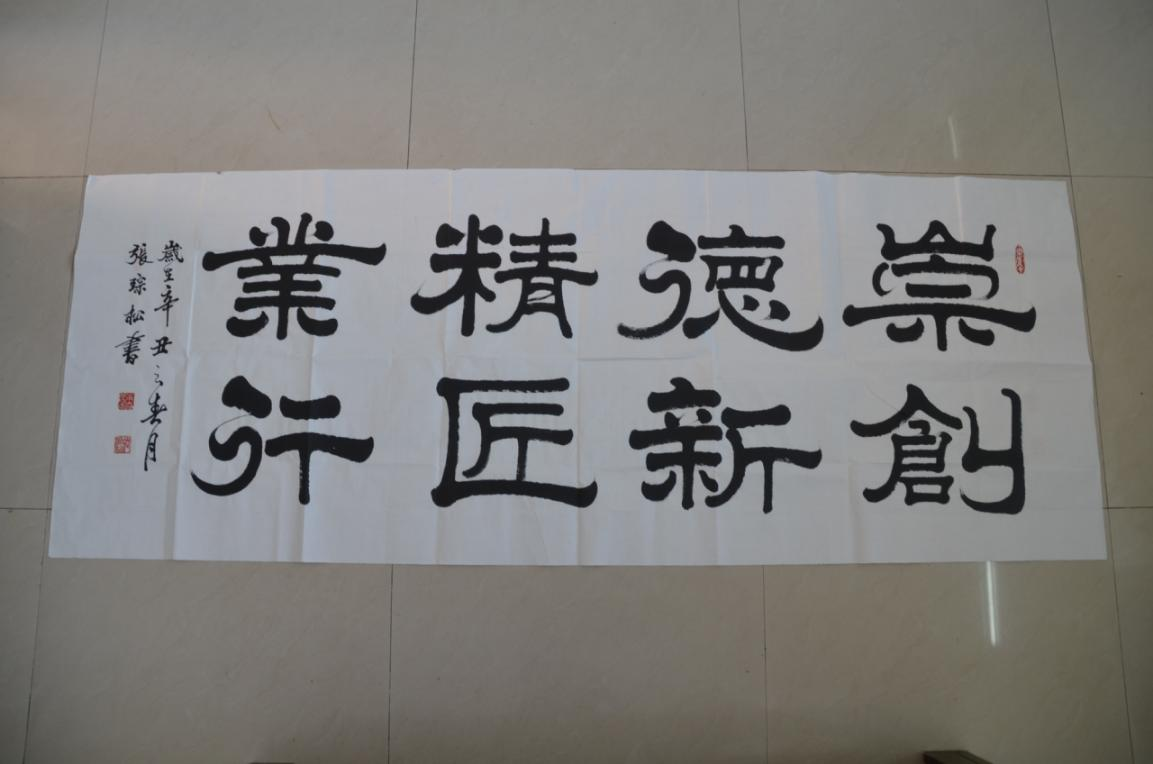 崇創
德新
精匠
業行
歲在辛丑之春月
張琮松書